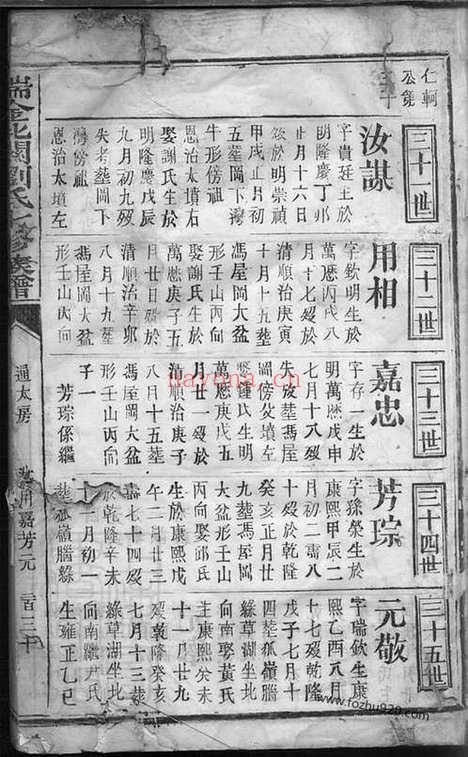 仁軻
公第
三十
三十一世
汝謀
字貴廷生於
明隆慶丁卯
正月十六日
歿於明崇禎
甲戌正月初
五塟岡下灣
牛形傍祖
恩治太墳右
娶謝氏生於
明隆慶戊辰
九月初九歿
失考塟岡下
灣傍祖
恩治太墳左
三十二世
用相
字欽明生於
萬曆丙戌八
月十七歿於
清順治庚寅
十月十九塟
馮屋岡大盆
形壬山丙向
娶謝氏生於
萬曆庚子五
月廿日歿於
清順治辛卯
八月十九塟
馮屋岡大盆
形壬山丙向
三十三世
嘉忠
字存一生於
明萬曆戊申
七月十八歿
失攷塟馮屋
岡傍父墳左
娶鍾氏生明
萬曆庚戌五
月廿一歿於
清順治庚子
八月十五塟
馮屋岡大盆
形壬山丙向
子一
芳琮係繼
三十四世
芳琮
字孫榮生於
康熙甲辰二
月初二需八
十歿於乾隆
癸亥正月廿
九塟馮屋岡
大盆形壬山
丙向娶邱氏
生於康熙戊
午二月廿三
壽七十四歿
於乾隆辛未
十一月初一
塟狐嶺腦綠
三十五世
元敬
字瑞敏生康
熙乙酉八月
十七歿乾隆
戊子七月十
四塟狐嶺腦
綠草湖坐北
向南娶黃氏
生康熙癸未
十一月廿九
歿乾隆癸亥
七月十三塟
綠草湖坐北
向南繼尹氏
生雍正乙巳
瑞金北關劉氏七修族譜
通太房
汝用嘉芳元
二百三十
nayona.cn
www.fozhu920.com